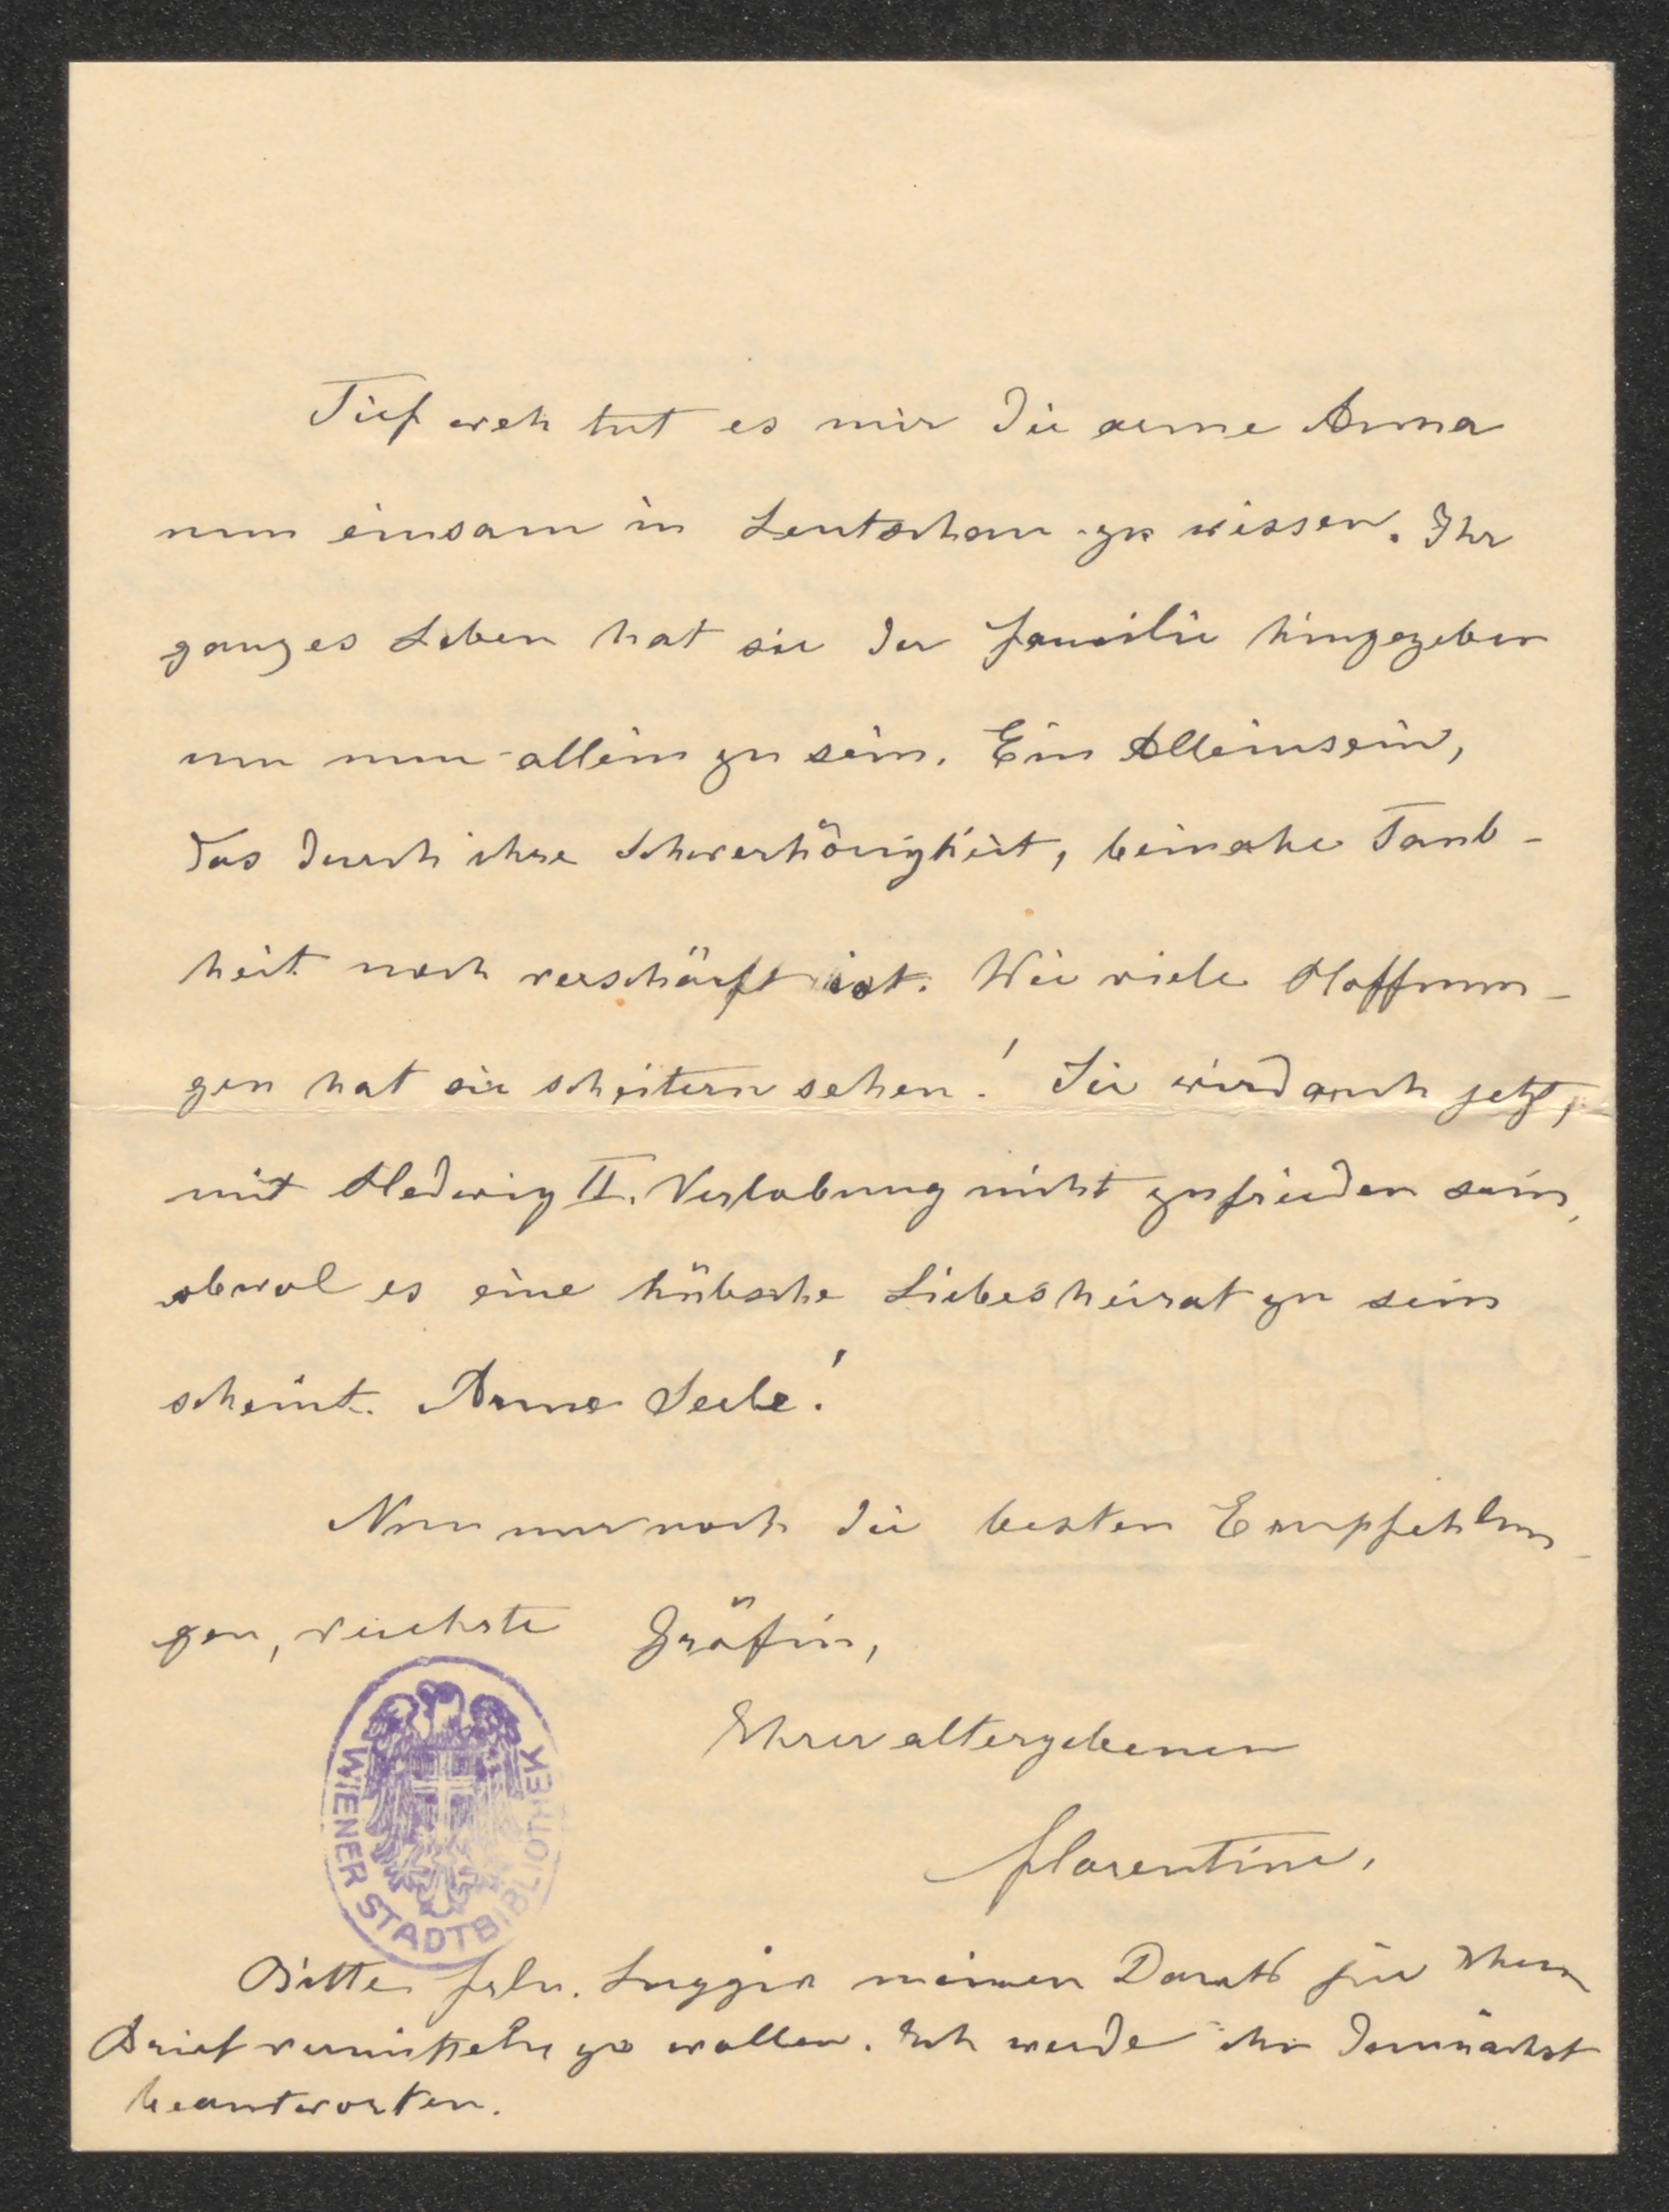 Tief weh tut es mir die arme Anna
nun einsam in Leutschau zu wissen. Ihr
ganzes Leben hat sie der Familie hingegeben
um nun allein zu sein. Ein Alleinsein,
das durch ihre Schwerhörigkeit, beinahe Taub-
heit noch verschärft ist. Wie viele Hoffnun-
gen hat sie scheitern sehen! Sie wird auch jetzt,
mit Hedwig II. Verlobung nicht zufrieden sein,
obwol es eine hübsche Liebesheirat zu sein
scheint. Arme Seele!
Nun nur noch die besten Empfehlun-
gen, vereehrte Gräfin,
Ihrer altergebenen
Florentine.
WIENER STADTBIBLIOTHEK
Bitte Frln. meinen Dank für Ihren
Brief vermitteln zu wollen. Ich werde ihn demnächst
beantworten.